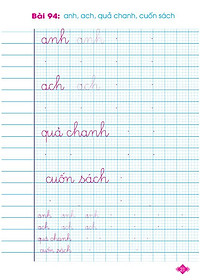 Bài 94: anh, ach, quả chanh, cuốn sách
anh anh
ach ach
quả chanh
cuốn sách
anh anh anh
ach ach ach
quả chanh
cuốn sách